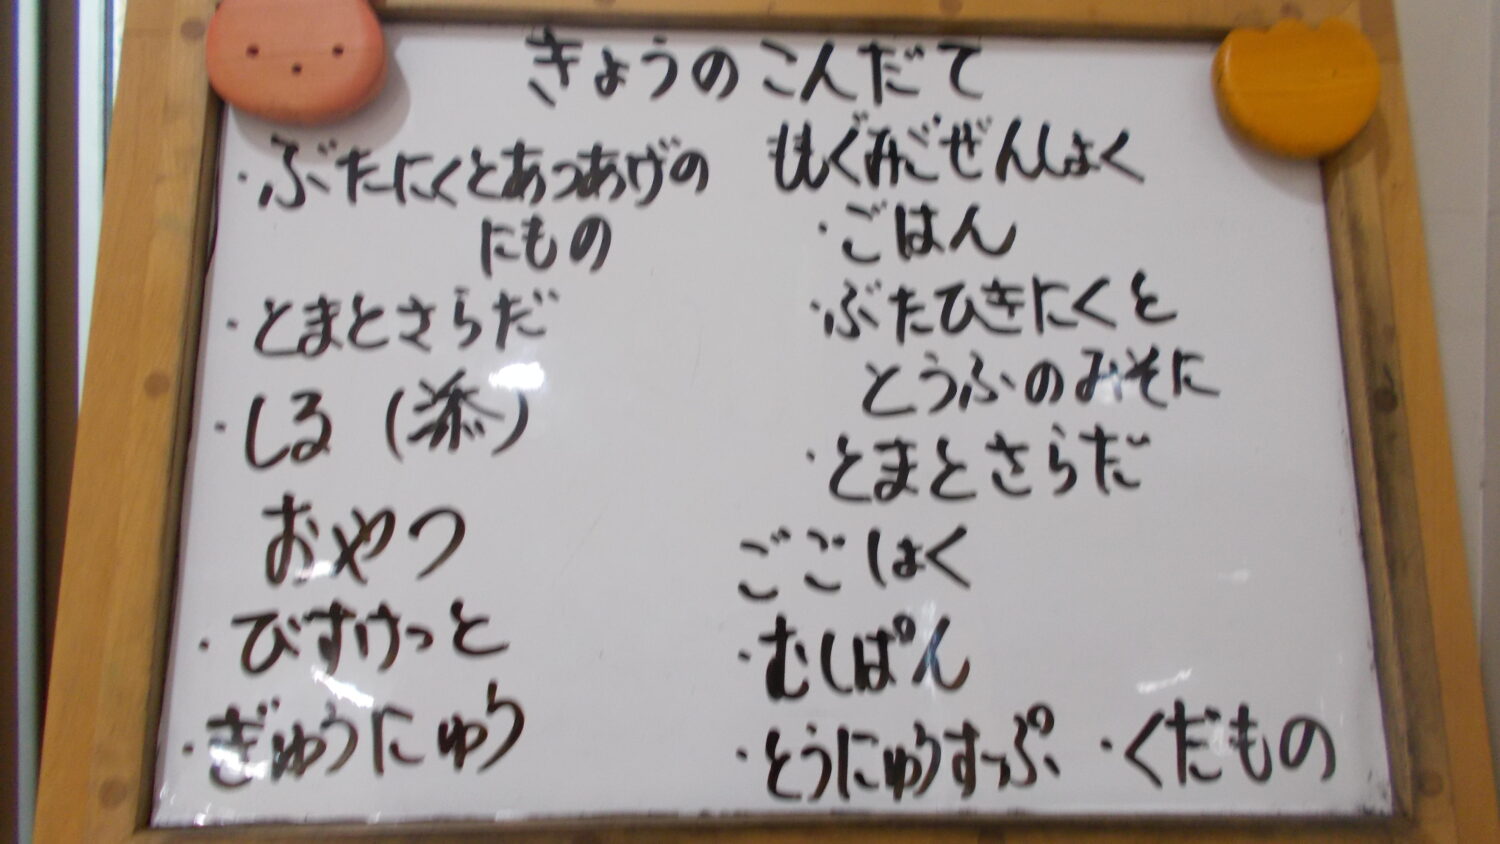 きょうのこんだて
・ぶたにくとあつあげの
にもの
・とまとさらだ
・しる (添)
おやつ
・びすけっと
・ぎゅうにゅう
もぐみごぜんしょく
・ごはん
・ぶたひきにくと
とうふのみそに
・とまとさらだ
ごごしょく
・むしぱん
・とうにゅうすっぷ ・くだもの